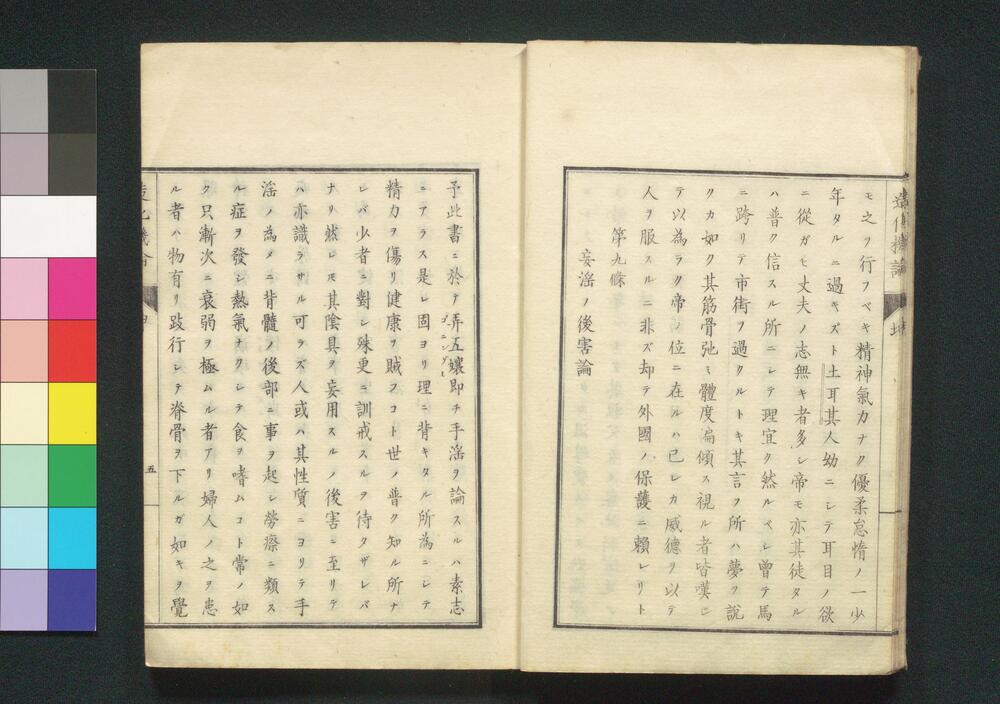 造化機論
モ之ヲ行フベキ精神氣力ナク優柔怠惰ノ一少
年タルニ過キズト土耳其人幼ニシテ耳目ノ欲
ニ從ガヒ丈夫ノ志無キ者多シ帝モ亦其徒タル
ハ普ク信スル所ニシテ理宜ク然ルベシ曾テ馬
ニ跨リテ市街ヲ過クルトキ其言フ所ハ夢ヲ說
クカ如ク其筋骨弛ミ體度漏傾ス視ル者皆嘆シ
テ以為ラク帝ノ位ニ在ルハ已レカ威德ヲ以テ
人ヲ服スルニ非ズ却テ外國ノ保護ニ賴レリト
第九條
妄淫ノ後害論
予此書ニ於テ弄五孃即チ手淫ヲ論スルハ素志
ニアラス是レ固ヨリ理ニ背キタル所為ニシテ
精力ヲ傷リ健康ヲ賊フコト世ノ普ク知ル所ナ
レバ少者ニ對シ殊更ニ訓戒スルヲ待タザレバ
ナリ然レモ其陰具ヲ妄用スルノ後害ニ至リテ
ハ亦識ラサル可ラズ人或ハ其性質ニヨリテ手
淫ノ為メニ背髓ノ後部ニ事ヲ起シ勞瘵ニ類ス
ル症ヲ發シ熱氣ナクシテ食ヲ嗜ムコト常ノ如
ク只漸次ニ衰弱ヲ極ムル者アリ婦人ノ之ヲ患
ル者ハ物有リ跂行シテ脊骨ヲ下ルガ如キヲ覺
五